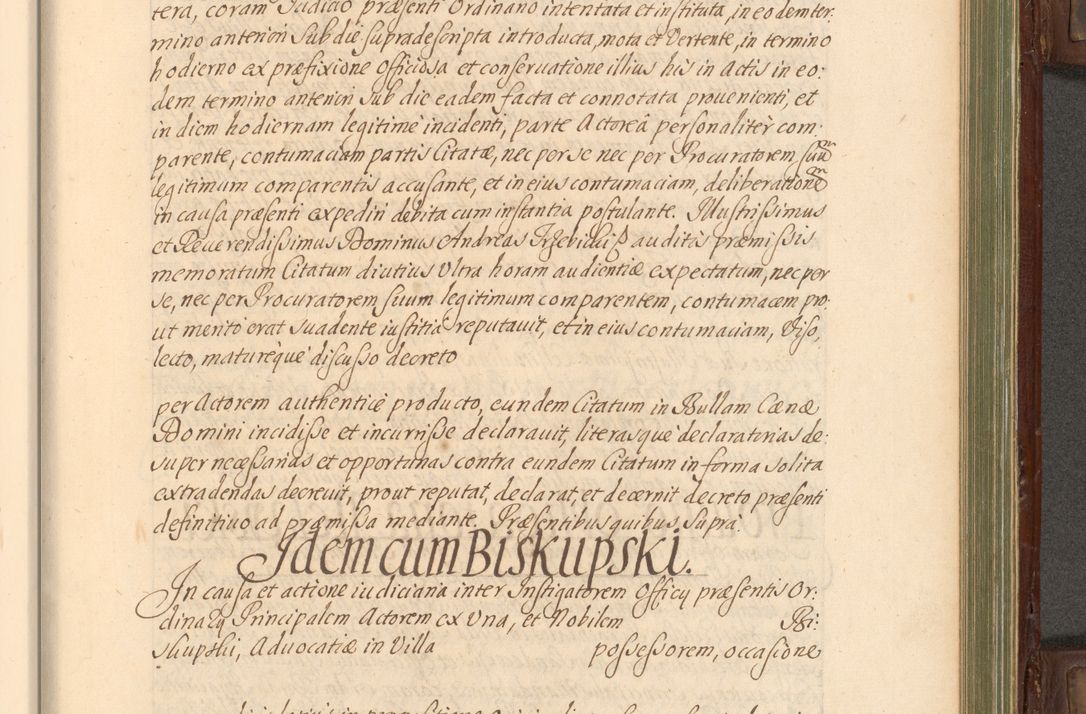 tera, coram Judicio præsenti Ordinario intentata et instituta, in eodem ter:
mino anteriori sub die supradescripta introducta, mota et Vertente, in termino
hodierno ex præfixione Officiosa et conservatione illius his in Actis in eo:
dem termino anteriori sub die eadem facta et connotata provenienti, et
in diem hodiernam legitimè incidenti, parte Actoreâ personaliter com:
parente, contumaciam partis Citatæ, nec per se nec per Procuratorem suum
legitimum comparentis accusante, et in eius contumaciam, deliberationem
in causa præsenti expediri debita cum instantia postulante. Illustrissimus
et Reverendissimus Dominus Andreas Trzebicki Eppus auditis præmissis
memoratum Citatum diutius Ultra horam audientiæ expectatum, nec per
se, nec per Procuratorem suum legitimum comparentem, contumacem pro:
ut merito erat suadente iustitia reputavit, et in eius contumaciam, Viso,
lecto, matureque discusso decreto
per Actorem authenticè producto, eundem Citatum in Bullam Cænæ
Domini incidisse et incurrisse declaravit, literasque declaratorias de:
super necessarias et opportunas contra eundem Citatum in forma solita
extradendas decrevit, prout reputat, declarat, et decernit decreto præsenti
definitivo ad præmissa mediante. Præsentibus quibus supra
Idem cum Biskupski.
In causa et actione iudiciaria inter Instigatorem Officij præsentis Or:
dinarij Principalem Actorem ex Una, et Nobilem Bi:
skupski, Advocatiæ in Villa possessorem, occasione